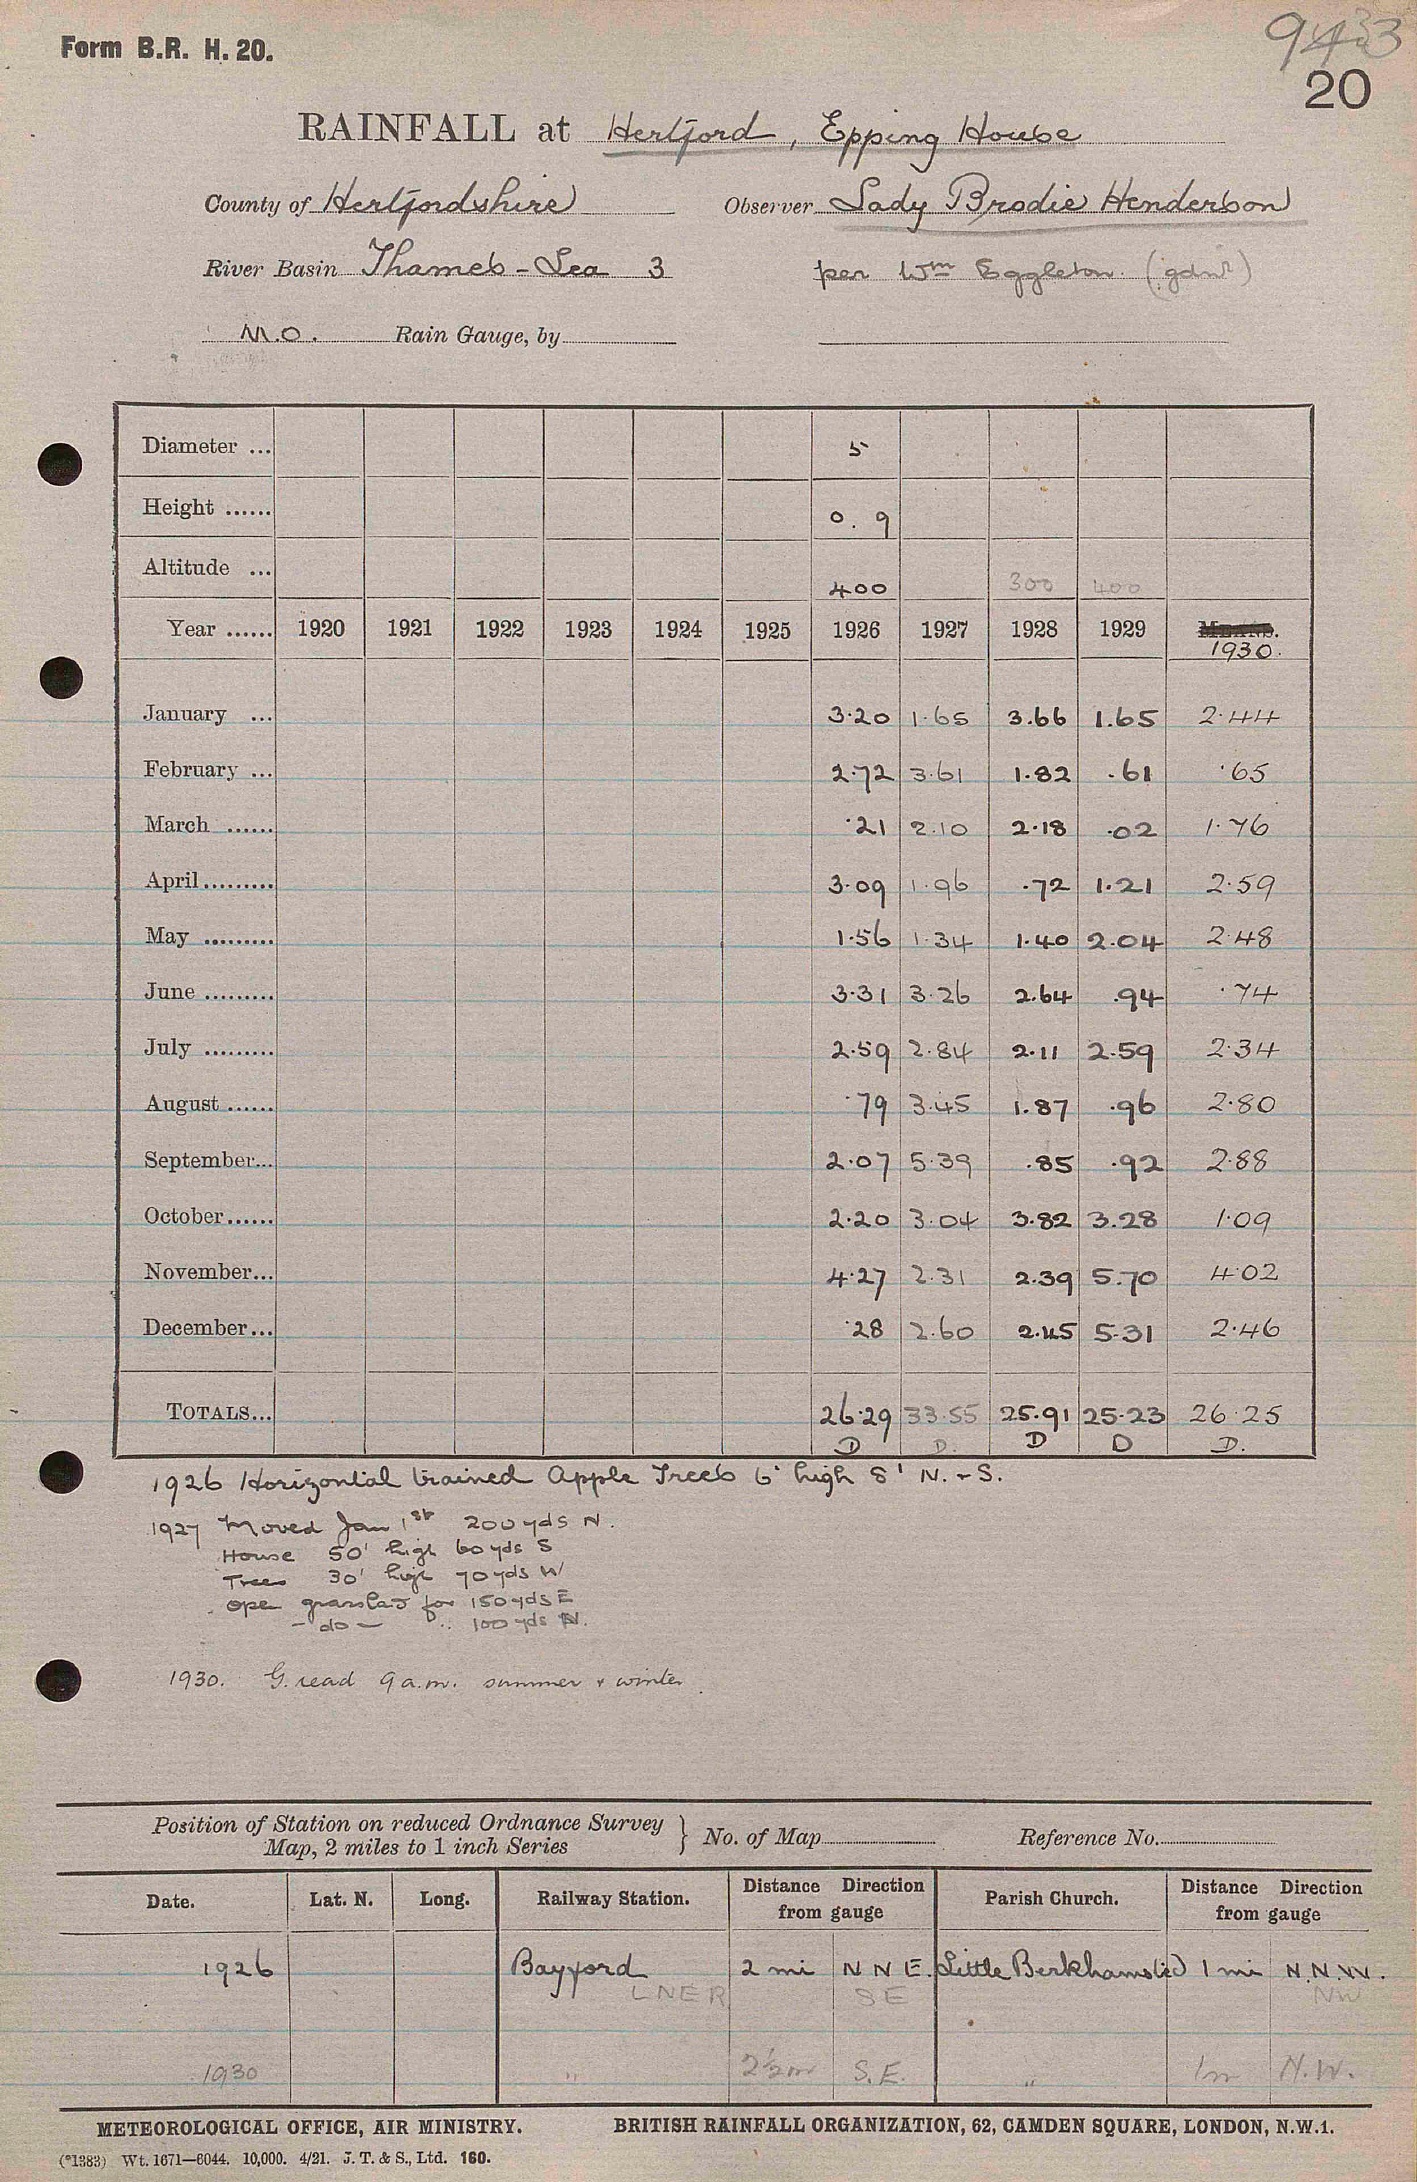 Form B.R. H. 20.
9433
20
RAINFALL at Hertford, Epping House
County of Hertfordshire Observer Lady Brodie Henderson
River Basin Thames - Lea 3 per Wm Eggleton. (gdnr)
M.O. Rain Gauge, by
Diameter ... 5
Height ...... 0. 9
Altitude ... 400 300 400
Year ...... 1920 1921 1922 1923 1924 1925 1926 1927 1928 1929 MEANS.
1930.
January ... 3.20 1.65 3.66 1.65 2.44
February ... 2.72 3.61 1.82 .61 .65
March ...... .21 2.10 2.18 .02 1.76
April ......... 3.09 1.96 .72 1.21 2.59
May ......... 1.56 1.34 1.40 2.04 2.48
June ......... 3.31 3.26 2.64 .94 .74
July ......... 2.59 2.84 2.11 2.59 2.34
August ...... .79 3.45 1.87 .96 2.80
September... 2.07 5.39 .85 .92 2.88
October...... 2.20 3.04 3.82 3.28 1.09
November... 4.27 2.31 2.39 5.70 4.02
December... .28 2.60 2.45 5.31 2.46
TOTALS... 26.29 33.55 25.91 25.23 26.25
D D. D D D.
1926 Horizontal trained Apple Trees 6' high 8' N. + S.
1927 Moved Jan 1st 200 yds N.
House 50' high 60 yds S
Trees 30' high 70 yds W
Ope grassland for 150 yds E
- do - .. 100 yds N.
1930. G. read 9 a.m. summer + winter.
Position of Station on reduced Ordnance Survey
Map, 2 miles to 1 inch Series } No. of Map Reference No.
Date. Lat. N. Long. Railway Station. Distance Direction from gauge Parish Church. Distance Direction from gauge
1926 Bayford 2 mi N N E. Little Berkhamsted 1 mi N.N.W.
LNER SE NW
1930 " 2½m S.E. " 1m N.W.
METEOROLOGICAL OFFICE, AIR MINISTRY. BRITISH RAINFALL ORGANIZATION, 62, CAMDEN SQUARE, LONDON, N.W.1.
(*1383) Wt. 1671—6044. 10,000. 4/21. J. T. & S., Ltd. 160.